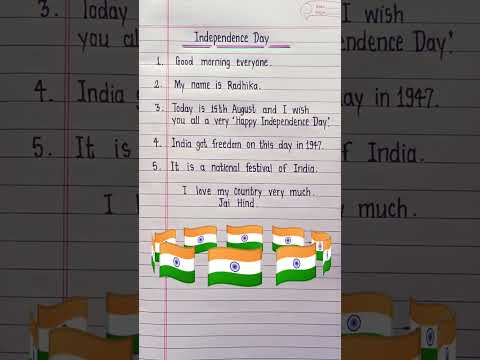 Independence Day
1. Good morning everyone.
2. My name is Radhika.
3. Today is 15th August and I wish
you all a very 'Happy Independence Day'.
4. India got freedom on this day in 1947.
5. It is a national festival of India.
I love my country very much.
Jai Hind.
3. Today
you al
4. India
5. It is
I l
I wish
endence Day'.
ay in 1947.
of India.
much.